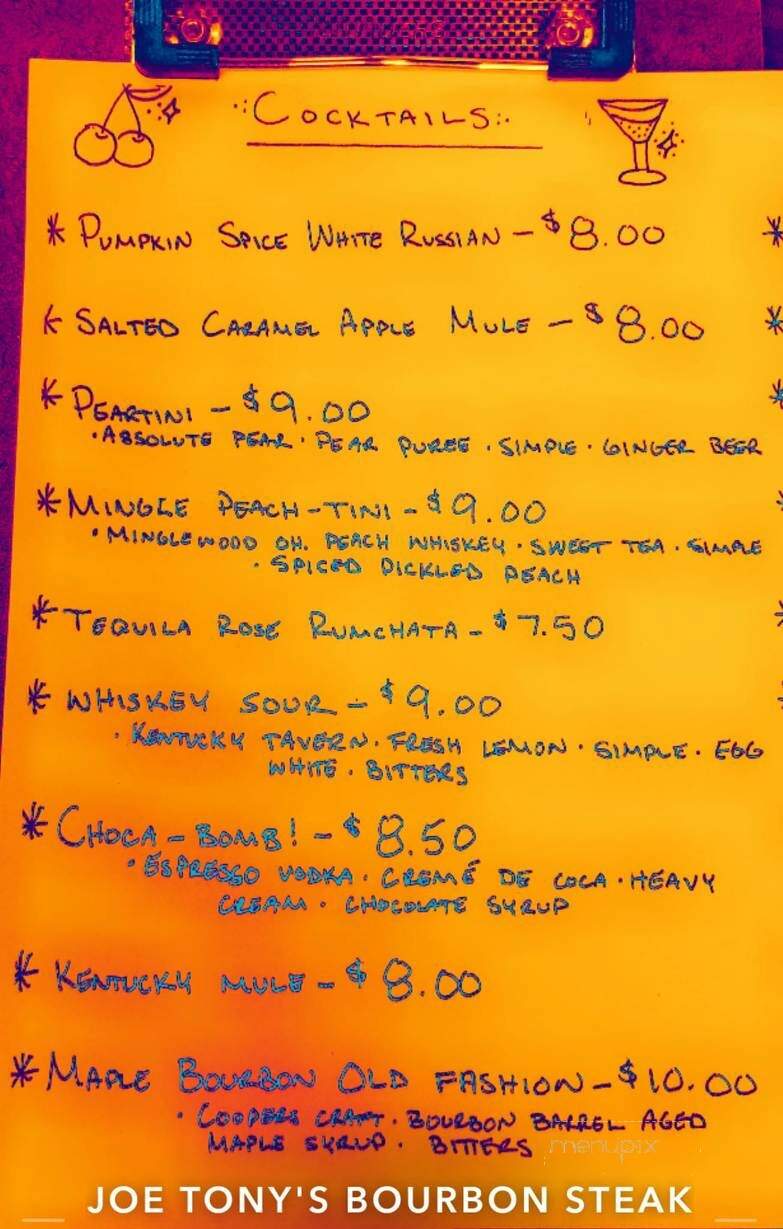 COCKTAILS
* PUMPKIN SPICE WHITE RUSSIAN - $8.00
* SALTED CARAMEL APPLE MULE - $8.00
* PEARTINI - $9.00
• ABSOLUTE PEAR • PEAR PUREE • SIMPLE • GINGER BEER
* MINGLE PEACH-TINI - $9.00
• MINGLEWOOD OH. PEACH WHISKEY • SWEET TEA • SIMPLE
• SPICED PICKLED PEACH
* TEQUILA ROSE RUMCHATA - $7.50
* WHISKEY SOUR - $9.00
• KENTUCKY TAVERN • FRESH LEMON • SIMPLE • EGG
WHITE • BITTERS
* CHOCA-BOMB! - $8.50
• ESPRESSO VODKA • CREMÉ DE COCA • HEAVY
CREAM • CHOCOLATE SYRUP
* KENTUCKY MULE - $8.00
* MAPLE BOURBON OLD FASHION - $10.00
• COOPERS CRAFT • BOURBON BARREL AGED
MAPLE SYRUP • BITTERS
menupix
JOE TONY'S BOURBON STEAK